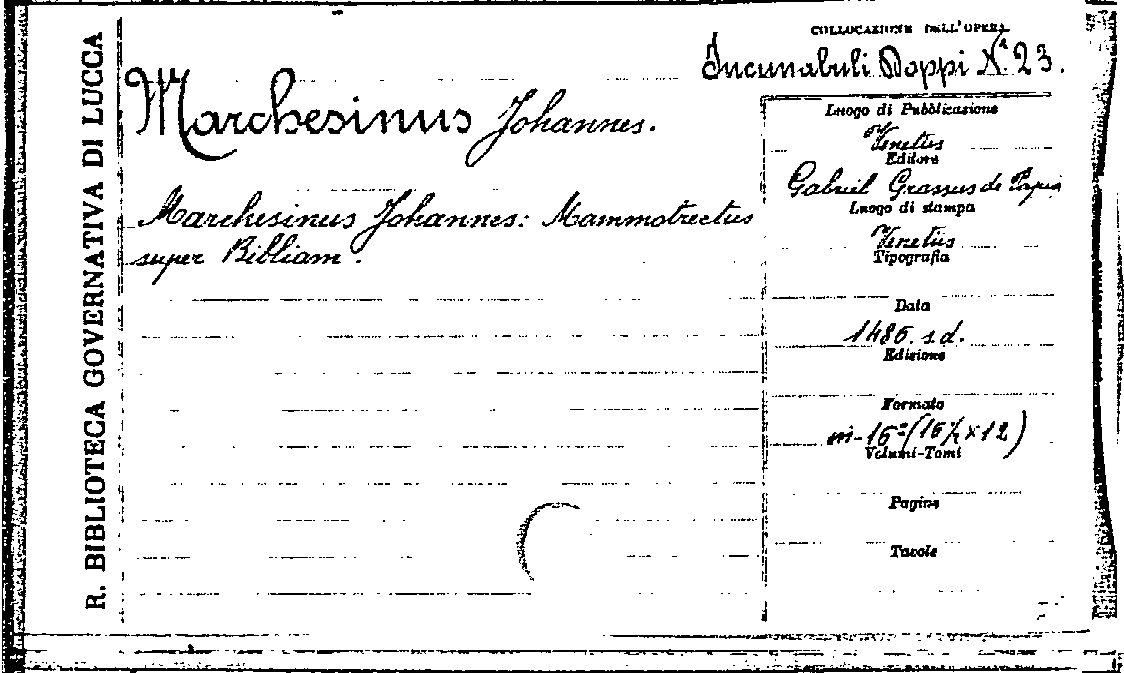 R. BIBLIOTECA GOVERNATIVA DI LUCCA
COLLOCAZIONE DELL'OPERA
Incunabuli Doppi N.º 23.
Marchesinus Johannes.
Marchesinus Johannes: Mammotrectus
super Bibliam.
Luogo di Pubblicazione
Venetus
Editore
Gabriel Grassus de Papia
Luogo di stampa
Venetus
Tipografia
Data
1485. s d.
Edizione
Formato
in-16º (16½ x 12)
Volumi-Tomi
Pagine
Tavole